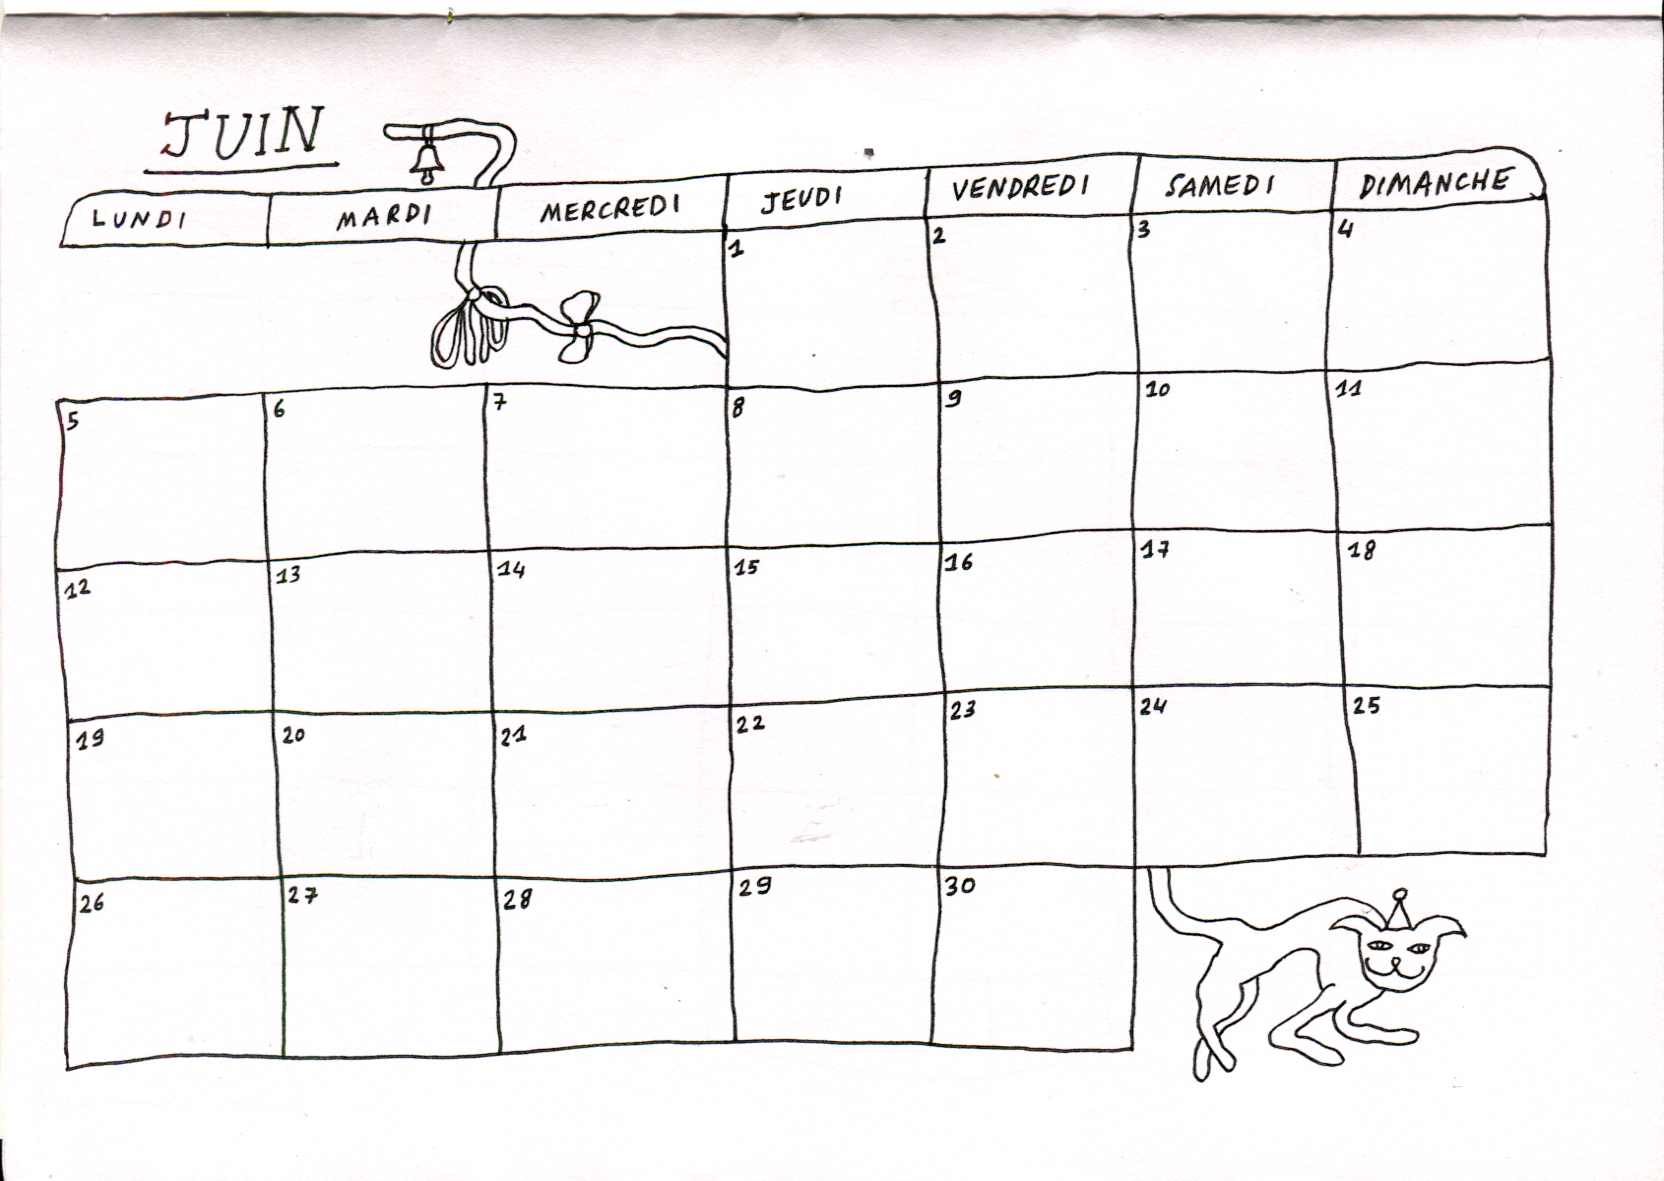 JUIN
LUNDI MARDI MERCREDI JEUDI VENDREDI SAMEDI DIMANCHE
1 2 3 4
5 6 7 8 9 10 11
12 13 14 15 16 17 18
19 20 21 22 23 24 25
26 27 28 29 30